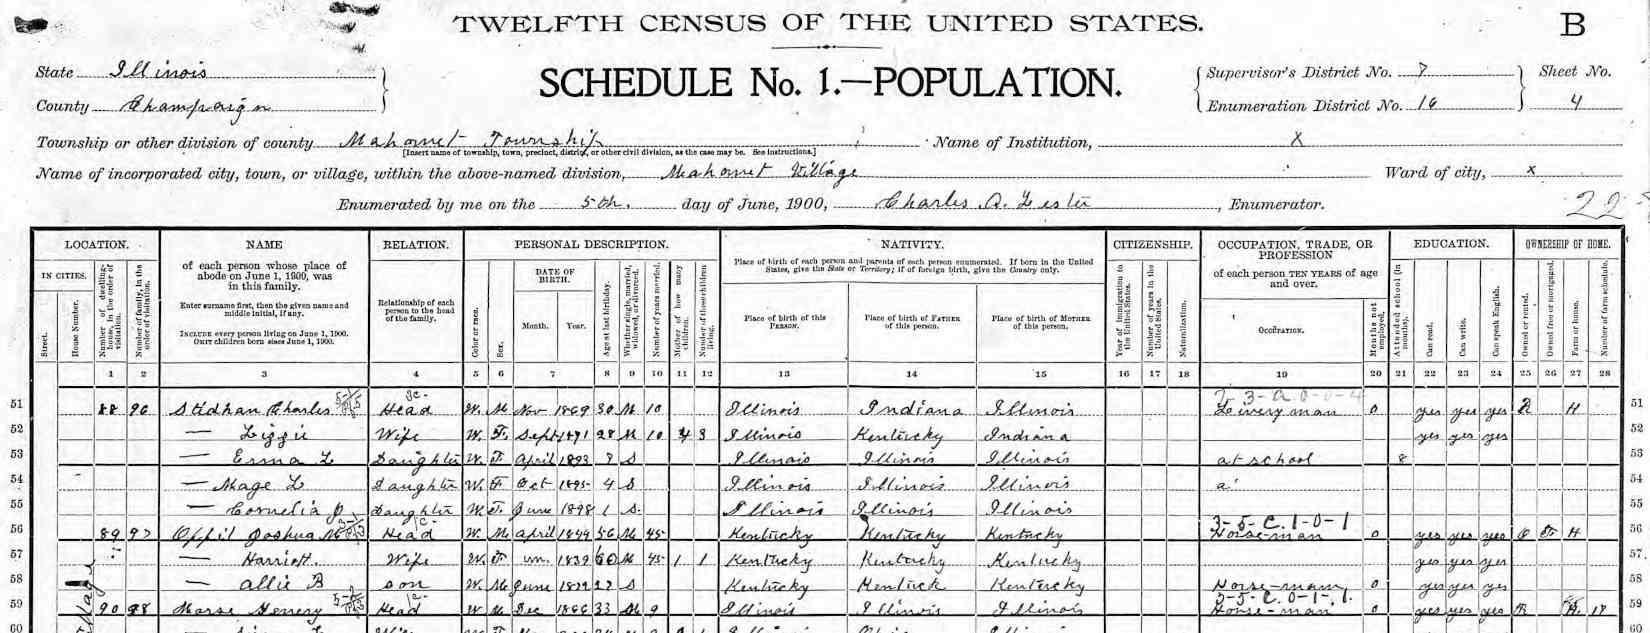 TWELFTH CENSUS OF THE UNITED STATES.
B
State Illinois
County Champaign
SCHEDULE No. 1.—POPULATION.
Supervisor's District No. 7
Enumeration District No. 16
Sheet No.
4
Township or other division of county Mahomet Township
[Insert name of township, town, precinct, district, or other civil division, as the case may be. See instructions.]
Name of Institution, X
Name of incorporated city, town, or village, within the above-named division, Mahomet Village
Ward of city, x
Enumerated by me on the 5th. day of June, 1900, Charles A. Lester, Enumerator.
22
LOCATION. NAME RELATION. PERSONAL DESCRIPTION. NATIVITY. CITIZENSHIP. OCCUPATION, TRADE, OR PROFESSION EDUCATION. OWNERSHIP OF HOME.
IN CITIES.
Street.
House Number.
Number of dwelling-house, in the order of visitation.
Number of family, in the order of visitation.
of each person whose place of abode on June 1, 1900, was in this family.
Enter surname first, then the given name and middle initial, if any.
INCLUDE every person living on June 1, 1900.
OMIT children born since June 1, 1900.
Relationship of each person to the head of the family.
Color or race.
Sex.
DATE OF BIRTH.
Month. Year.
Age at last birthday.
Whether single, married, widowed, or divorced.
Number of years married.
Mother of how many children.
Number of these children living.
Place of birth of each person and parents of each person enumerated. If born in the United States, give the State or Territory; if of foreign birth, give the Country only.
Place of birth of this PERSON.
Place of birth of FATHER of this person.
Place of birth of MOTHER of this person.
Year of immigration to the United States.
Number of years in the United States.
Naturalization.
of each person TEN YEARS of age and over.
OCCUPATION.
Months not employed.
Attended school (in months).
Can read.
Can write.
Can speak English.
Owned or rented.
Owned free or mortgaged.
Farm or home.
Number of farm schedule.
1 2 3 4 5 6 7 8 9 10 11 12 13 14 15 16 17 18 19 20 21 22 23 24 25 26 27 28
51 88 96 Charles Head W. M Nov 1869 30 M 10 Illinois Indiana Illinois Livery man 0 yes yes yes R H 51
52 — Lizzie Wife W. F. Sept 1871 28 M 10 4 3 Illinois Kentucky Indiana yes yes yes 52
53 — Erma L Daughter W. F April 1893 7 S Illinois Illinois Illinois at school 8 53
54 — Mage L Daughter W. F Oct 1895 4 S Illinois Illinois Illinois a 54
55 — Cornelia Daughter W. F. June 1898 1 S. Illinois Illinois Illinois 55
3-5-C.1-0-1
56 89 97 Joshua M Head W. M April 1844 56 M 45 Kentucky Kentucky Kentucky Horse-man 0 yes yes yes O F H 56
57 — Harriott. Wife W. F un. 1839 60 M 45 1 1 Kentucky Kentucky Kentucky yes yes yes 57
58 — Allie B son W. M June 1872 27 S Kentucky Kentuck Kentucky Horse-man 0 yes yes yes 58
3-5-C.0-1-1.
59 90 98 Morse Henery Head W M Dec 1866 33 M 9 Illinois Illinois Illinois Horse-man 0 yes yes yes R 59
60 60